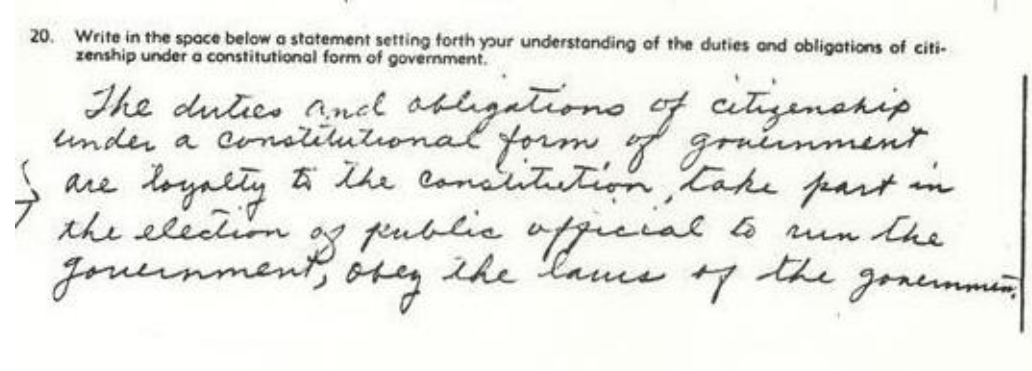 20. Write in the space below a statement setting forth your understanding of the duties and obligations of citi-
zenship under a constitutional form of government.
The duties and obligations of citizenship
under a constitutional form of government
are loyalty to the constitution, take part in
the election of public official to run the
government, obey the laws of the governmen.